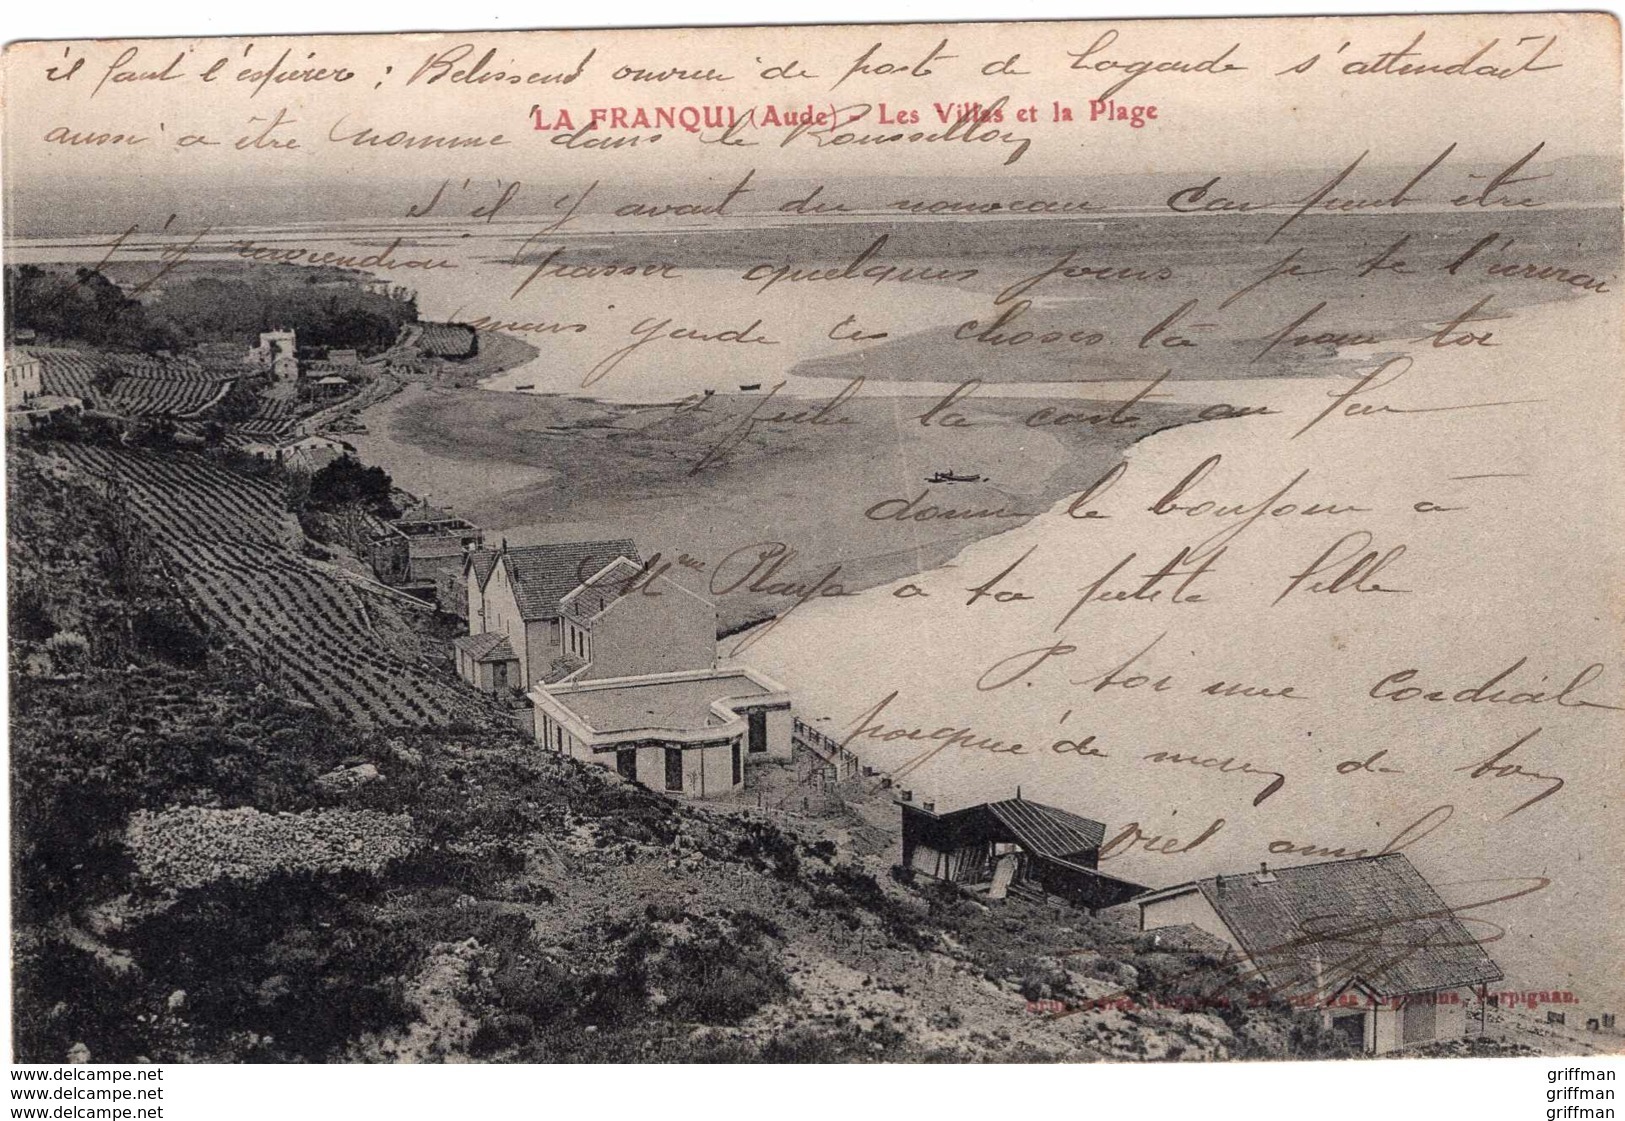 il faut l'espérer ; Belissent ouvrier de poste de Lagarde s'attendait
LA FRANQUI (Aude) - Les Villas et la Plage
aussi a être nommé dans le Roussillon
S'il y avait du nouveau Car peut être
j'y reviendrai passer quelques jours je te l'écrirai
mais garde ces choses là pour toi
la carte au feu
donne le bonjour à
Mme Playa a ta petite fille
P. toi une cordiale
poignée de main de ton
viel ami
rue des Augustins, Perpignan.
www.delcampe.net
www.delcampe.net
www.delcampe.net
griffman
griffman
griffman